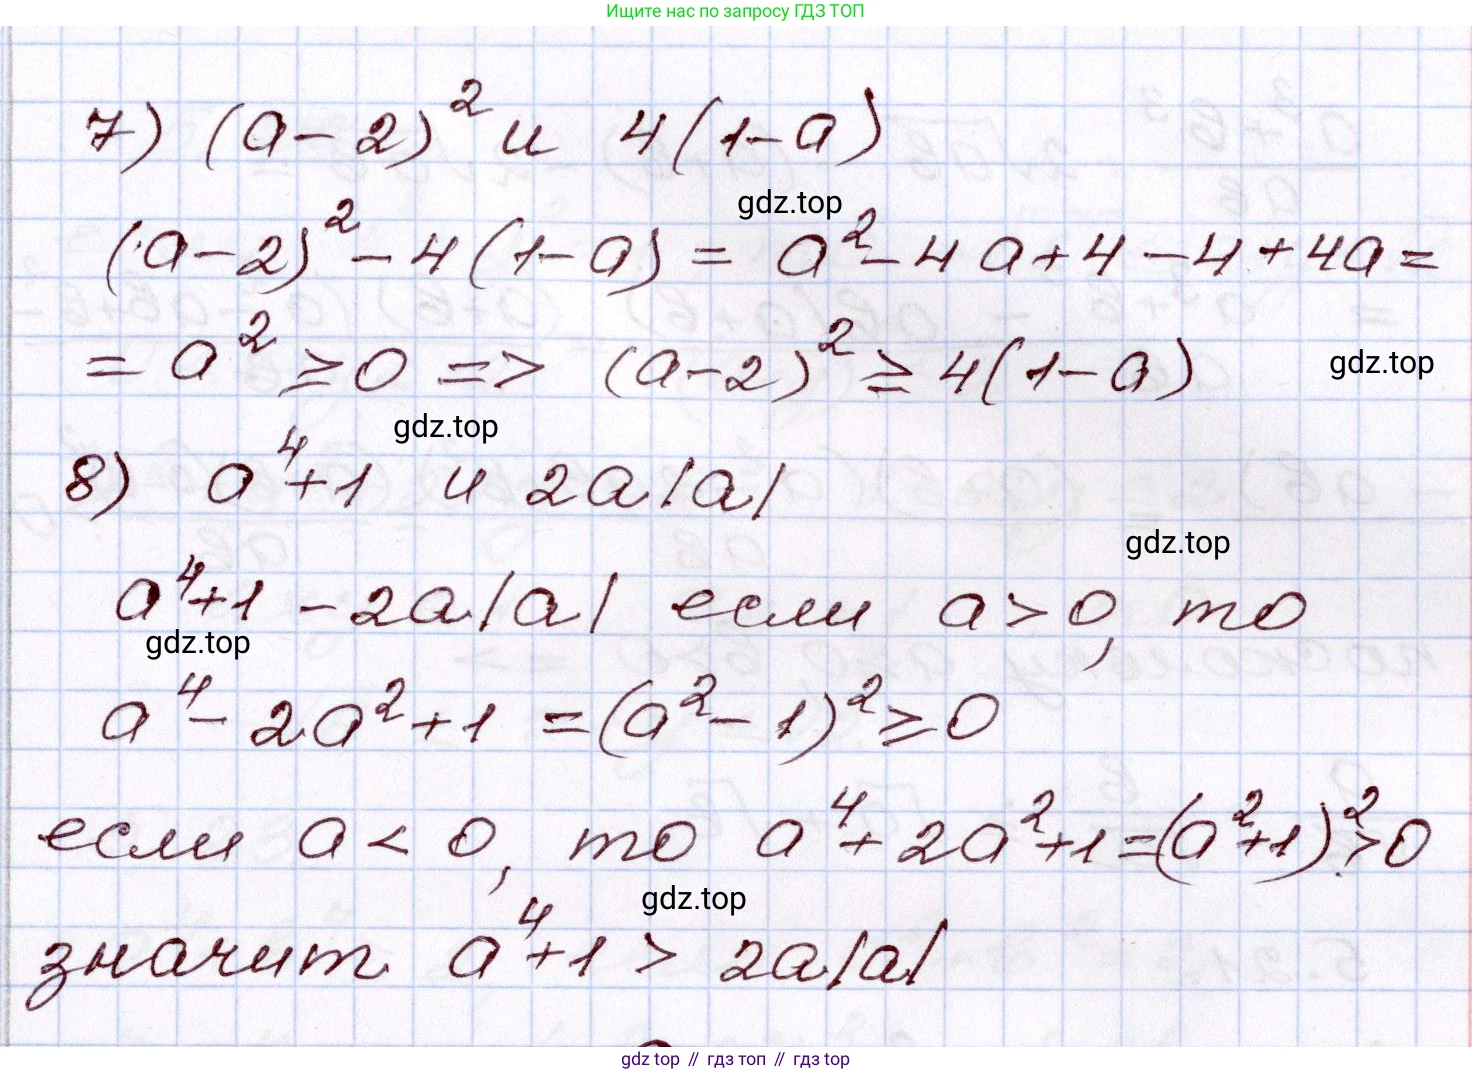 Ищите нас по запросу ГДЗ ТОП
7) (a-2)² и 4(1-a)
gdz.top
(a-2)² - 4(1-a) = a² - 4a + 4 - 4 + 4a =
= a² ≥ 0 => (a-2)² ≥ 4(1-a)
gdz.top
gdz.top
8) a⁴+1 и 2a|a|
gdz.top
a⁴+1 - 2a|a| если a > 0, то
gdz.top
a⁴ - 2a² + 1 = (a² - 1)² ≥ 0
если a < 0, то a⁴ + 2a² + 1 = (a²+1)² > 0
gdz.top
значит a⁴+1 > 2a|a|
gdz top // гдз топ // гдз top